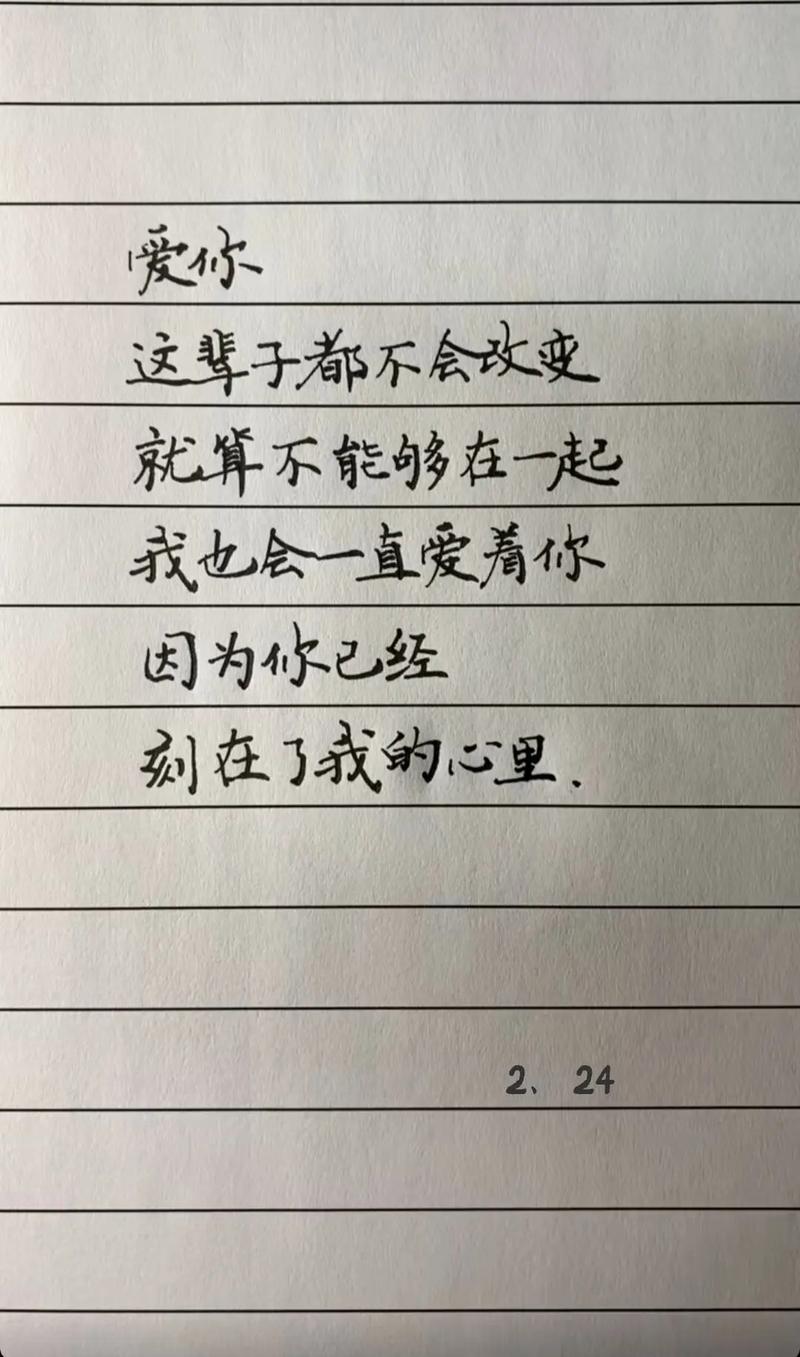 爱你
这辈子都不会改变
就算不能够在一起
我也会一直爱着你
因为你已经
刻在了我的心里.
2、24